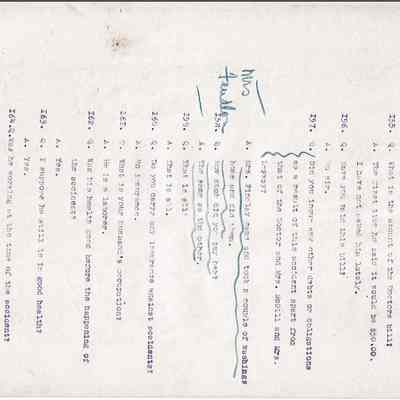 155. Q. What is the amount of the doctors bill?
A. The first time he said it would be $50.00.
I have not asked him lately.
156. Q. Have you paid this bill?
A. No sir.
157. Q. Did you incur any other debts or obligations
as a result of this accident apart from
that of the doctor and Mrs. and Mrs.
Mrs
A. Mrs. Findlay came and took a couple of washings
home and did them.
158. Q. How much did you pay her?
A. The same as the other.
159. Q. What is it?
A. That is all.
160. Q. Do you carry any insurance against accidents?
A. No insurance.
161. Q. What is your husband's occupation?
A. He is a laborer.
162. Q. Was his health good before the happening of
the accident?
A. Yes.
163. Q. I suppose he still is in good health?
A. Yes.
164. Q. Was he working at the time of the accident?